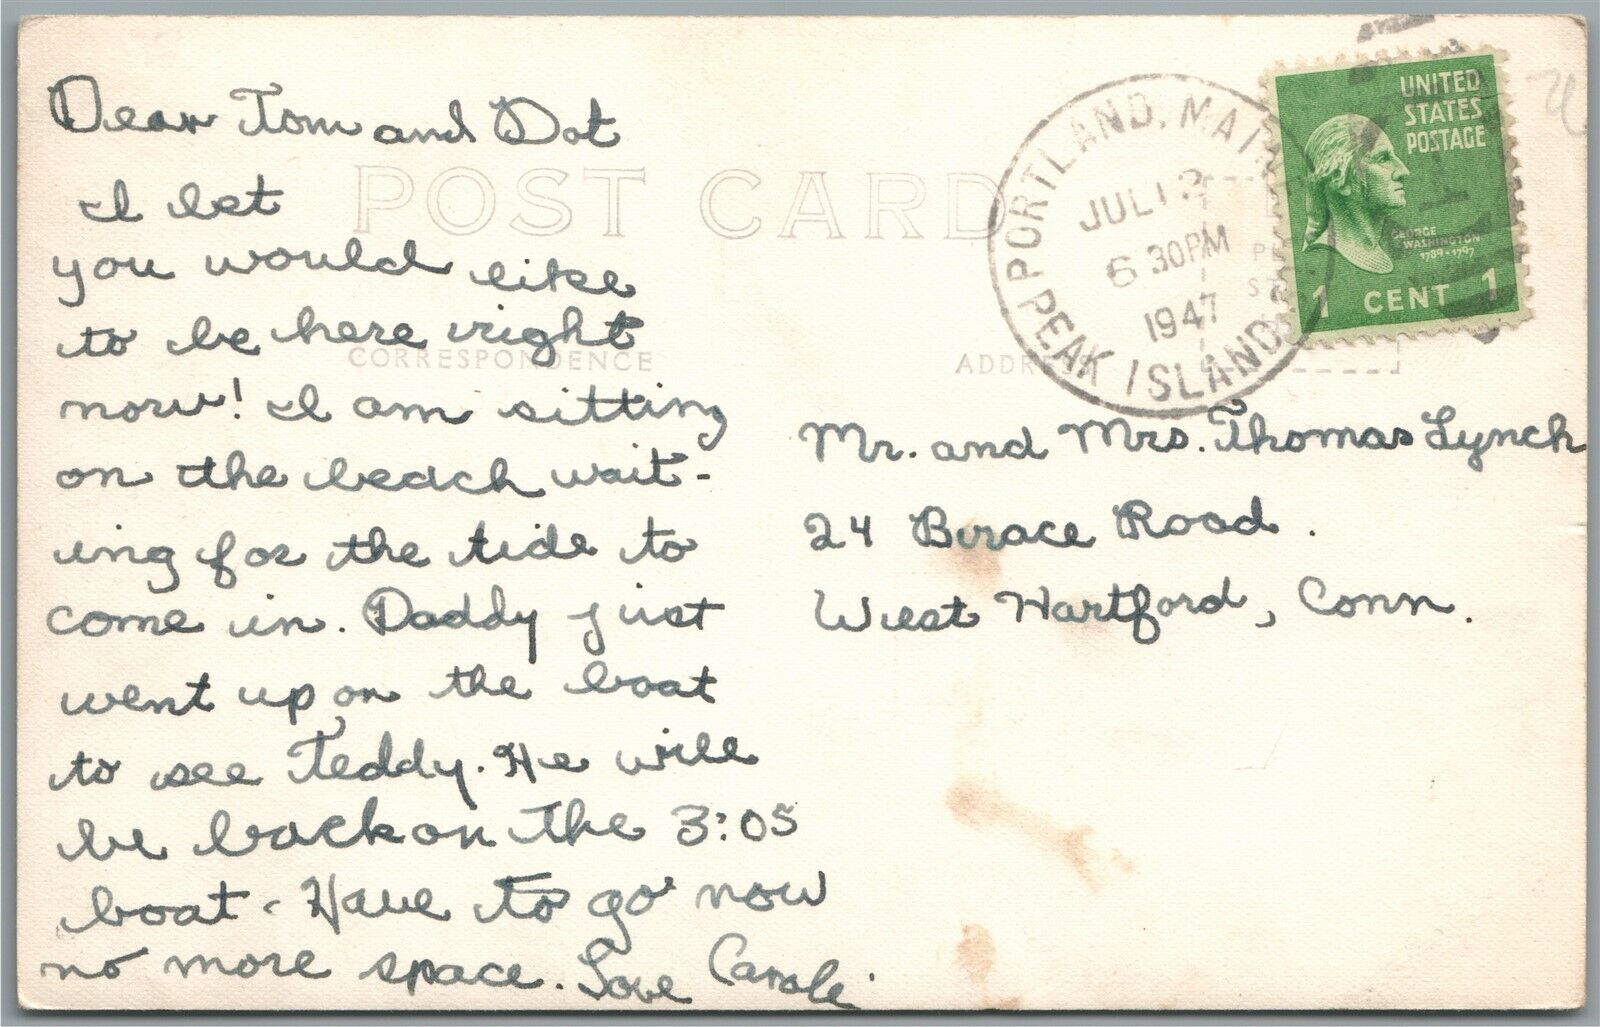 Dear Tom and Dot
I bet
you would like
to be here right
now! I am sitting
on the beach wait-
ing for the tide to
come in. Daddy just
went up on the boat
to see Teddy. He will
be back on the 3:05
boat. Have to go now
no more space. Love Carole
POST CARD
CORRESPONDENCE
ADDRESS
PORTLAND, MAINE
JUL 12
6 30 PM
1947
PEAK ISLAND
UNITED
STATES
POSTAGE
GEORGE
WASHINGTON
1789-1797
1 CENT 1
Mr. and Mrs. Thomas Lynch
24 Brace Road.
West Hartford, Conn.